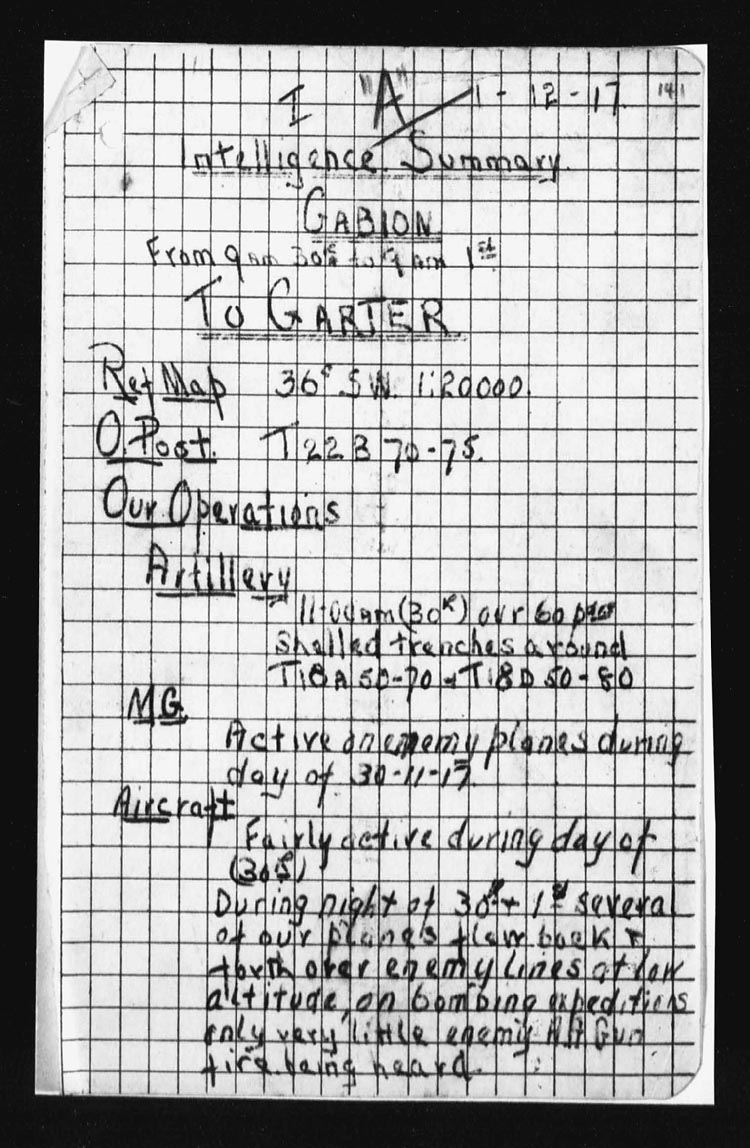 I "A" 1-12-17. 141
Intelligence Summary
GABION
From 9 am 30th to 9 am 1st
To GARTER
Ref Map 36c SW. 1:20000.
O. Post. T 22 B 70-75.
Our Operations
Artillery
11-00 am (30th) our 60 prs
shelled trenches around
T18A 50-70 + T18D 50-80
MG
Active on enemy planes during
day of 30-11-17
Aircraft
Fairly active during day of
(30th)
During night of 30th + 1st several
of our planes flew back +
forth over enemy lines at low
altitude, on bombing expeditions
only very little enemy AA Gun
fire being heard